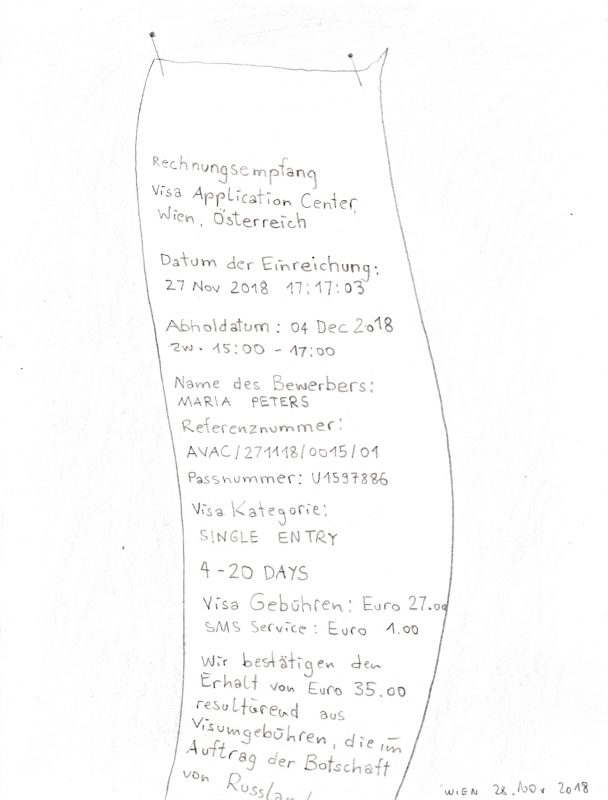 Rechnungsempfang
Visa Application Center,
Wien, Österreich
Datum der Einreichung:
27 Nov 2018 17:17:03
Abholdatum: 04 Dec 2018
zw. 15:00 - 17:00
Name des Bewerbers:
MARIA PETERS
Referenznummer:
AVAC/271118/0015/01
Passnummer: U1597886
Visa Kategorie:
SINGLE ENTRY
4-20 DAYS
Visa Gebühren: Euro 27.00
SMS Service: Euro 1.00
Wir bestätigen den
Erhalt von Euro 35.00
resultărend aus
Visumgebühren, die im
Auftrag der Botschaft
von Russland
WIEN 28. Nov 2018